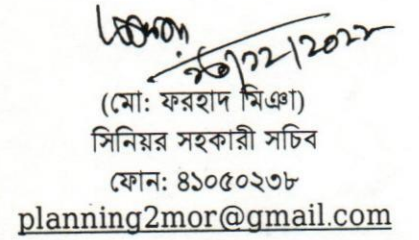 ২৬/১২/২০২২
(মো: ফরহাদ মিঞা)
সিনিয়র সহকারী সচিব
ফোন: ৪১০৫০২৩৮
planning2mor@gmail.com